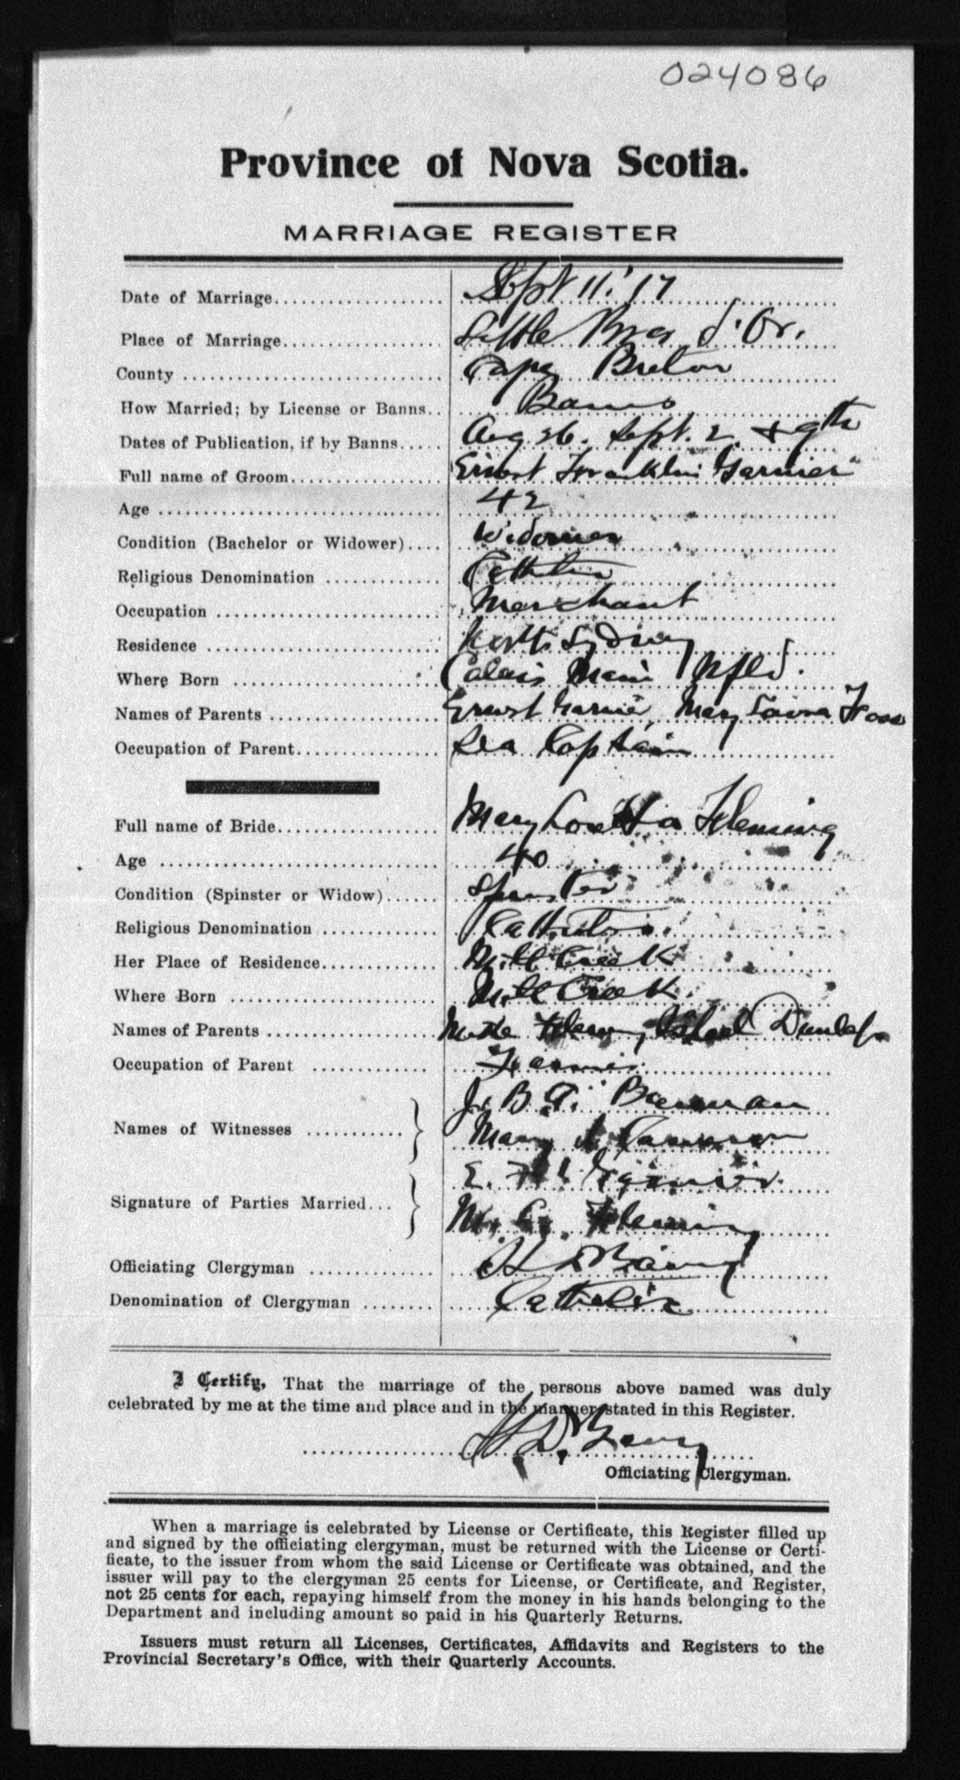 024086
Province of Nova Scotia.
MARRIAGE REGISTER
Date of Marriage Sept 11' 17
Place of Marriage Little Bras d'Or.
County Cape Breton
How Married; by License or Banns.. Banns
Dates of Publication, if by Banns Aug 26. Sept. 2. + 9th
Full name of Groom Ernest Franklin Garnier
Age 42
Condition (Bachelor or Widower) Widower
Religious Denomination Catholic
Occupation Merchant
Residence North Sydney
Where Born Calais Main Nfld.
Names of Parents Ernest Garnier, Mary Laura
Occupation of Parent Sea Captain
Full name of Bride Mary Loretta Fleming
Age 40
Condition (Spinster or Widow) Spinster
Religious Denomination Catholic
Her Place of Residence Mill Creek
Where Born Mill Creek
Names of Parents Dunlap
Occupation of Parent Farmer
Names of Witnesses J. B.
Mary Cameron
Signature of Parties Married... E. F. Garnier
M. L. Fleming
Officiating Clergyman
Denomination of Clergyman Catholic
I Certify, That the marriage of the persons above named was duly
celebrated by me at the time and place and in the manner stated in this Register.
Officiating Clergyman.
When a marriage is celebrated by License or Certificate, this Register filled up
and signed by the officiating clergyman, must be returned with the License or Certi-
ficate, to the issuer from whom the said License or Certificate was obtained, and the
issuer will pay to the clergyman 25 cents for License, or Certificate, and Register,
not 25 cents for each, repaying himself from the money in his hands belonging to the
Department and including amount so paid in his Quarterly Returns.
Issuers must return all Licenses, Certificates, Affidavits and Registers to the
Provincial Secretary's Office, with their Quarterly Accounts.